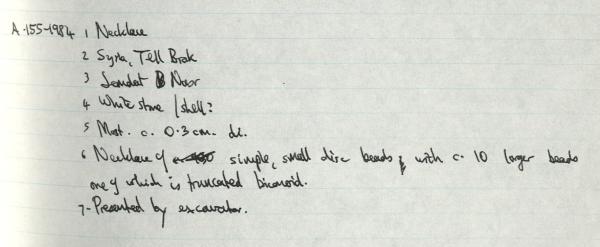 A.155-1984 1 Necklace
2 Syria, Tell Brak
3 Jemdet Nasr
4 White stone / shell?
5 Most. c. 0.3 cm. di.
6 Necklace of simple, small disc beads, with c. 10 larger beads
one of which is truncated biconoid.
7- Presented by excavator.